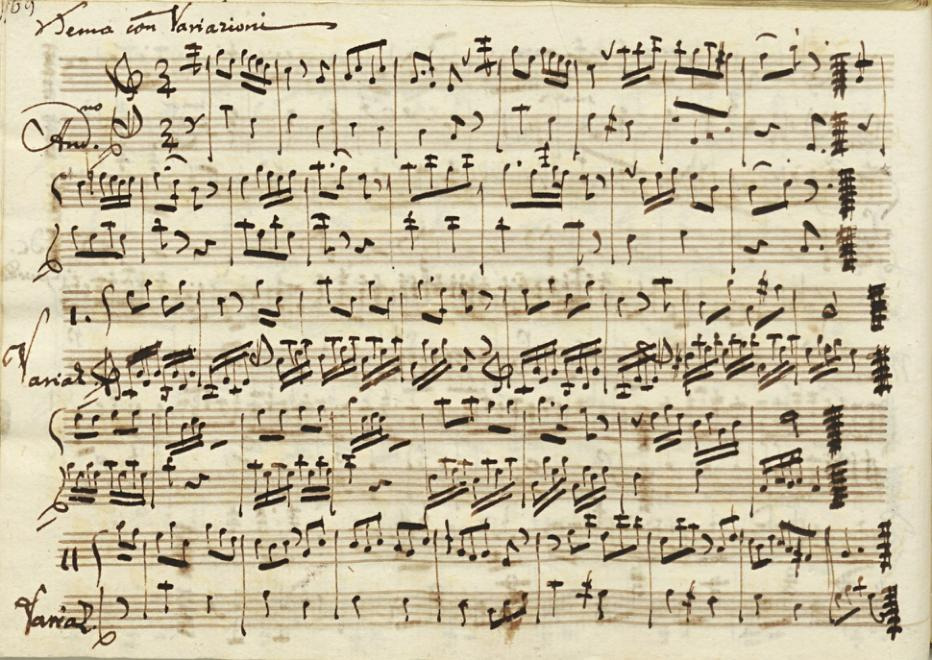 169
Tema con Variazioni
And.no
3/4
3/4
1.
Variaz.
11
Variaz.